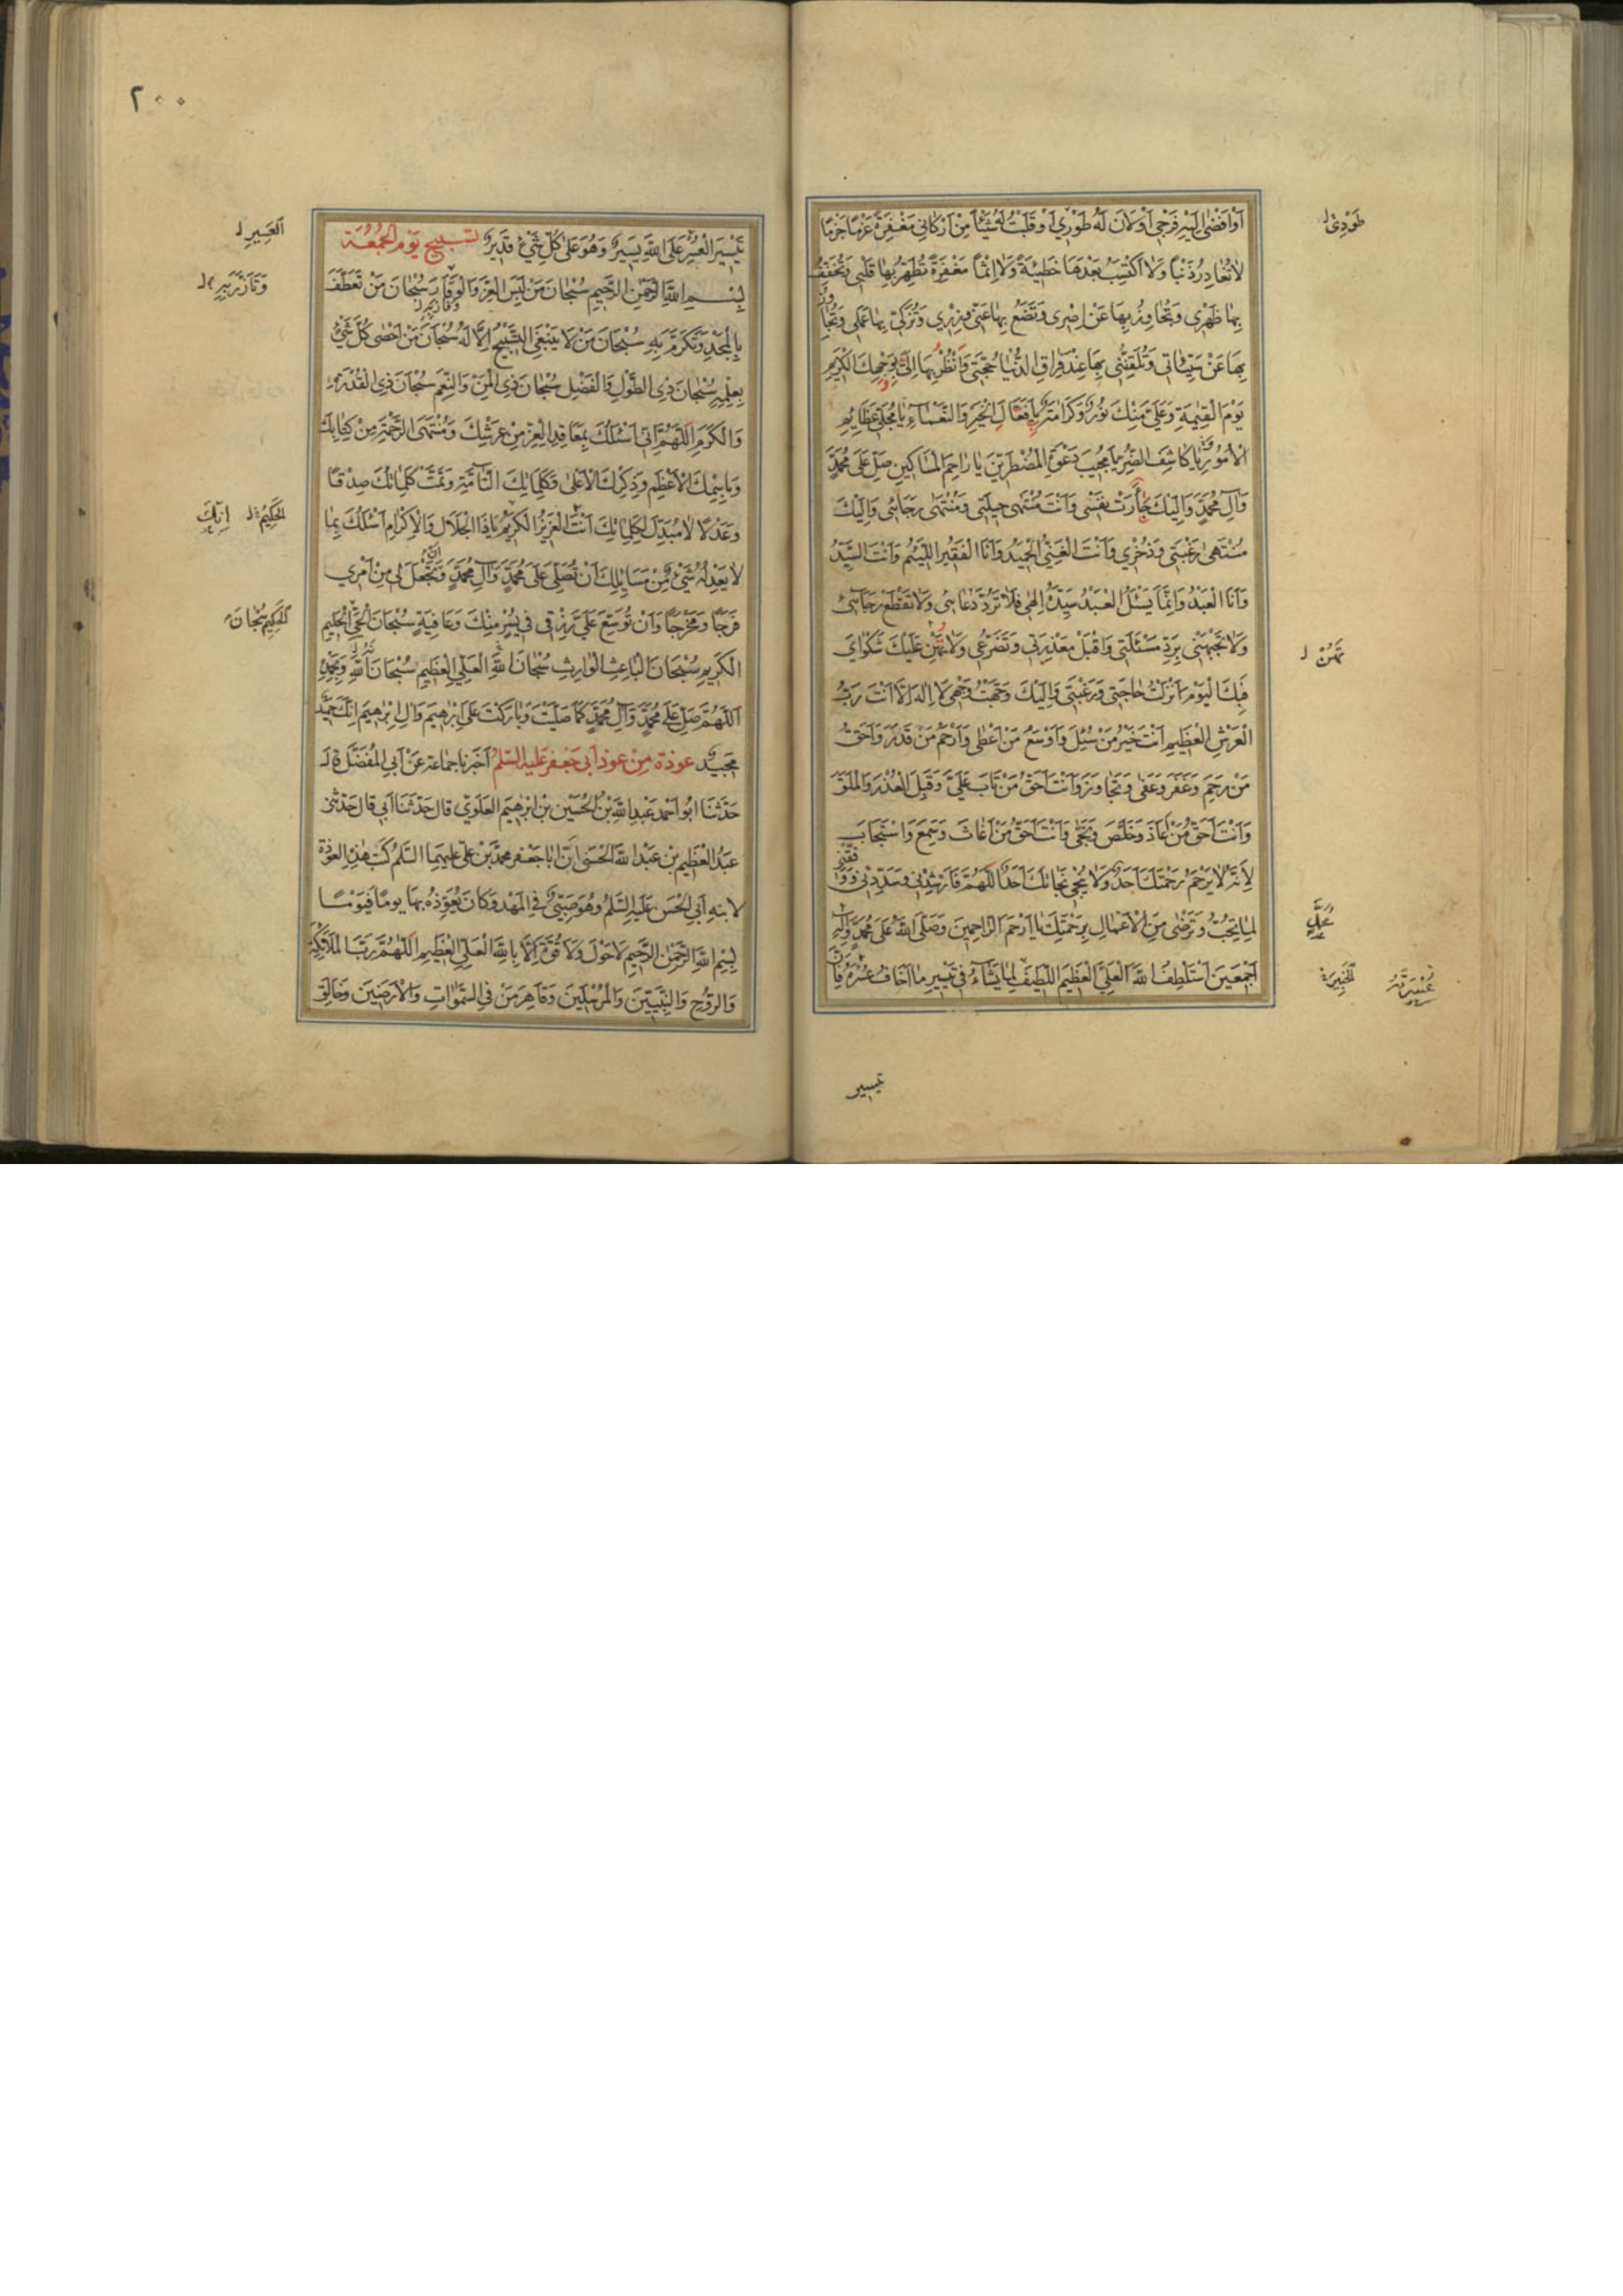 اَوْ اَفْضٰى اِلَيْهِ فَرْجى اَوْ لَانَ لَهُ طَوْرِي اَوْ قَلَّبْتُ لَهُ شَيْئاً مِنْ اَرْكانى مَغْفِرَةً عَزْمًا جَزْمًا
طَوْدى ل
لاٰ تُغادِرُ ذَنْباً وَلاٰ اَكْتَسِبُ بَعْدَهَا خَطٖيئَةً وَلاٰ اِثْمًا مَغْفِرَةً تُطَهِّرُ بِهٰا قَلْبٖى وَتُخَفِّفُ
بِهٰا ظَهْرى وَتُجٰاوِزُ بِهٰا عَنْ اِصْرى وَتَضَعُ بِهٰا عَنّى وِزْرى وَتُزَكّى بِهٰا عَمَلى وَتَجٰاوَزُ
بِهٰا عَنْ سَيِّئٰاتى وَتُلَقِّنُنى بِهٰا عِنْدَ فِرٰاقِ الدُّنْيٰا حُجَّتى وَاَنْظُرُ بِهٰا اِلىٰ وَجْهِكَ الْكَرٖيمِ
يَوْمَ الْقِيٰمَةِ وَعَلَىَّ مِنْكَ نُورٌ وَكَرٰامَةٌ يٰا فَعّٰالَ الْخَيْرِ وَالنَّعْمٰاءِ يٰا مُجَلِّىَ عَظٰايِمِ
الْاُمُورِ يٰا كٰاشِفَ الضُّرِّ يٰا مُجيبَ دَعْوَةِ الْمُضْطَرّينَ يٰا رٰاحِمَ الْمَسٰاكينِ صَلِّ عَلىٰ مُحَمَّدٍ
وَآلِ مُحَمَّدٍ وَاِلَيْكَ جَأَرَتْ نَفْسى وَاَنْتَ مُنْتَهىٰ حيلَتى وَمُنْتَهىٰ رَجٰائى وَاِلَيْكَ
مُنْتَهىٰ رَغْبَتى وَذُخْري وَاَنْتَ الْغَنِىُّ الْحَميدُ وَاَنَا الْفَقيرُ اللَّئيمُ وَاَنْتَ السَّيِّدُ
وَاَنَا الْعَبْدُ وَاِنَّمٰا يَسْئَلُ الْعَبْدُ سَيِّدَهُ اِلٰهى فَلاٰ تَرُدَّ دُعٰائى وَلاٰ تَقْطَعْ رَجٰآئى
وَلاٰ تَجْبَهْنى بِرَدِّ مَسْئَلَتى وَاقْبَلْ مَعْذِرَتى وَتَضَرُّعى وَلاٰ تُهِنْ عَلَيْكَ شَكْوٰايَ
تَهُنْ ل
فَبِكَ الْيَوْمَ اَنْزَلْتُ حٰاجَتى وَرَغْبَتى وَاِلَيْكَ وَجَّهْتُ وَجْهى لاٰ اِلٰهَ اِلاّٰ اَنْتَ رَبُّ
الْعَرْشِ الْعَظيمِ اَنْتَ خَيْرُ مَنْ سُئِلَ وَاَوْسَعُ مَنْ اَعْطىٰ وَاَرْحَمُ مَنْ قَدَرَ وَاَحَقُّ
مَنْ رَحِمَ وَغَفَرَ وَعَفىٰ وَتَجٰاوَزَ وَاَنْتَ اَحَقُّ مَنْ تٰابَ عَلَيَّ وَقَبِلَ الْعُذْرَ وَالْمَلَقَ
وَاَنْتَ اَحَقُّ مَنْ اَعٰاذَ وَخَلَّصَ وَنَجّٰى وَاَنْتَ اَحَقُّ مَنْ اَغٰاثَ وَسَمِعَ وَاسْتَجٰابَ
لِاَنَّهُ لاٰ يَرْحَمُ رَحْمَتَكَ اَحَدٌ وَلاٰ يُنْجى نَجٰاتَكَ اَحَدٌ اللّٰهُمَّ فَاَرْشِدْنى وَسَدِّدْنى وَوَفِّقْنى
لِمٰا تُحِبُّ وَتَرْضٰى مِنَ الْاَعْمٰالِ بِرَحْمَتِكَ يٰا اَرْحَمَ الرّٰاحِمينَ وَصَلَّى اللّٰهُ عَلىٰ مُحَمَّدٍ وَآلِهِ
اَجْمَعينَ اَسْتَلْطِفُ اللّٰهَ الْعَلِيَّ الْعَظيمَ اللَّطيفَ لِمٰا يَشٰاءُ فى تَيْسيرِ مٰا اَخٰافُ عُسْرَهُ فَاِنَّ
تيسير
٢٠٠
تَيْسيرَ الْعُسْرِ عَلَى اللّٰهِ يَسيرٌ وَهُوَ عَلىٰ كُلِّ شَىْءٍ قَديرٌ تسبيح يَوْم الجُمُعَة
العَسِيرِ ل
بِسْمِ اللّٰهِ الرَّحْمٰنِ الرَّحيمِ سُبْحٰانَ مَنْ لَبِسَ الْعِزَّ وَالْوَقٰارَ سُبْحٰانَ مَنْ تَعَطَّفَ
بِالْمَجْدِ وَتَكَرَّمَ بِهِ سُبْحٰانَ مَنْ لاٰ يَنْبَغِى التَّسْبيحُ اِلاّٰ لَهُ سُبْحٰانَ مَنْ اَحْصٰى كُلَّ شَىْءٍ
بِعِلْمِهِ سُبْحٰانَ ذِى الطَّوْلِ وَالْفَضْلِ سُبْحٰانَ ذِى الْمَنِّ وَالنِّعَمِ سُبْحٰانَ ذِى الْقُدْرَةِ
وَالْكَرَمِ اَللّٰهُمَّ اِنّى اَسْئَلُكَ بِمَعٰاقِدِ الْعِزِّ مِنْ عَرْشِكَ وَمُنْتَهَى الرَّحْمَةِ مِنْ كِتٰابِكَ
وَبِاسْمِكَ الْاَعْظَمِ وَذِكْرِكَ الْاَعْلىٰ وَكَلِمٰاتِكَ التّٰآمَّةِ وَتَمَّتْ كَلِمٰاتُكَ صِدْقًا
وَعَدْلًا لاٰ مُبَدِّلَ لِكَلِمٰاتِكَ اَنْتَ الْعَزيزُ الْكَريمُ يٰا ذَا الْجَلاٰلِ وَالْاِكْرٰامِ اَسْئَلُكَ بِمٰا
الحَكِيمُ ل اِنَّكَ
لاٰ يَعْدِلُهُ شَىْءٌ مِنْ مَسٰايِلِكَ اَنْ تُصَلِّىَ عَلىٰ مُحَمَّدٍ وَآلِ مُحَمَّدٍ وَاَنْ تَجْعَلَ لى مِنْ اَمْرى
فَرَجًا وَمَخْرَجًا وَاَنْ تُوَسِّعَ عَلَىَّ رِزْقى فى يُسْرٍ مِنْكَ وَعٰافِيَةٍ سُبْحٰانَ الْحَىِّ الْحَليمِ
الْكَريمِ سُبْحٰانَ الْبٰاعِثِ الْوٰارِثِ سُبْحٰانَ اللّٰهِ الْعَلِىِّ الْعَظيمِ سُبْحٰانَ اللّٰهِ وَبِحَمْدِهِ
اَللّٰهُمَّ صَلِّ عَلىٰ مُحَمَّدٍ وَآلِ مُحَمَّدٍ كَمٰا صَلَّيْتَ وَبٰارَكْتَ عَلىٰ اِبْرٰهيمَ وَآلِ اِبْرٰهيمَ اِنَّكَ حَميدٌ
مَجيدٌ عوذة مِنْ عوذ اَبى جَعْفر عَلَيه السّلم اَخبرنا جماعة عَنْ اَبى المُفَضَّل قال
حَدَّثَنَا ابُو اَحمد عَبْد اللّٰه بْن الحُسَيْن بْن ابْرٰهيم العَلَوِىّ قال حَدَّثَنَا اَبى قال حَدَّثَنى
عَبْدُ العَظيم بْن عَبْد اللّٰه الحَسَنى اَنّ ابا جَعْفر محمدَ بْن عَلىّ عليهِمَا السَّلم كَتَبَ هٰذِهِ العُوذَة
لابنهِ اَبى الحَسَن عَلَيْهِ السَّلم وهُوَ صَبىٌّ فى المَهْد وَكانَ يُعَوِّذُهُ بِهَا يومًا فَيَوْمًا
بِسْمِ اللّٰهِ الرَّحْمٰنِ الرَّحيمِ لاٰ حَوْلَ وَلاٰ قُوَّةَ اِلاّٰ بِاللّٰهِ الْعَلِىِّ الْعَظيمِ اَللّٰهُمَّ رَبَّ الْمَلآئِكَةِ
وَالرُّوحِ وَالنَّبِيّينَ وَالْمُرْسَلينَ وَقٰاهِرَ مَنْ فِى السَّمٰوٰاتِ وَالْاَرَضينَ وَخٰالِقَ